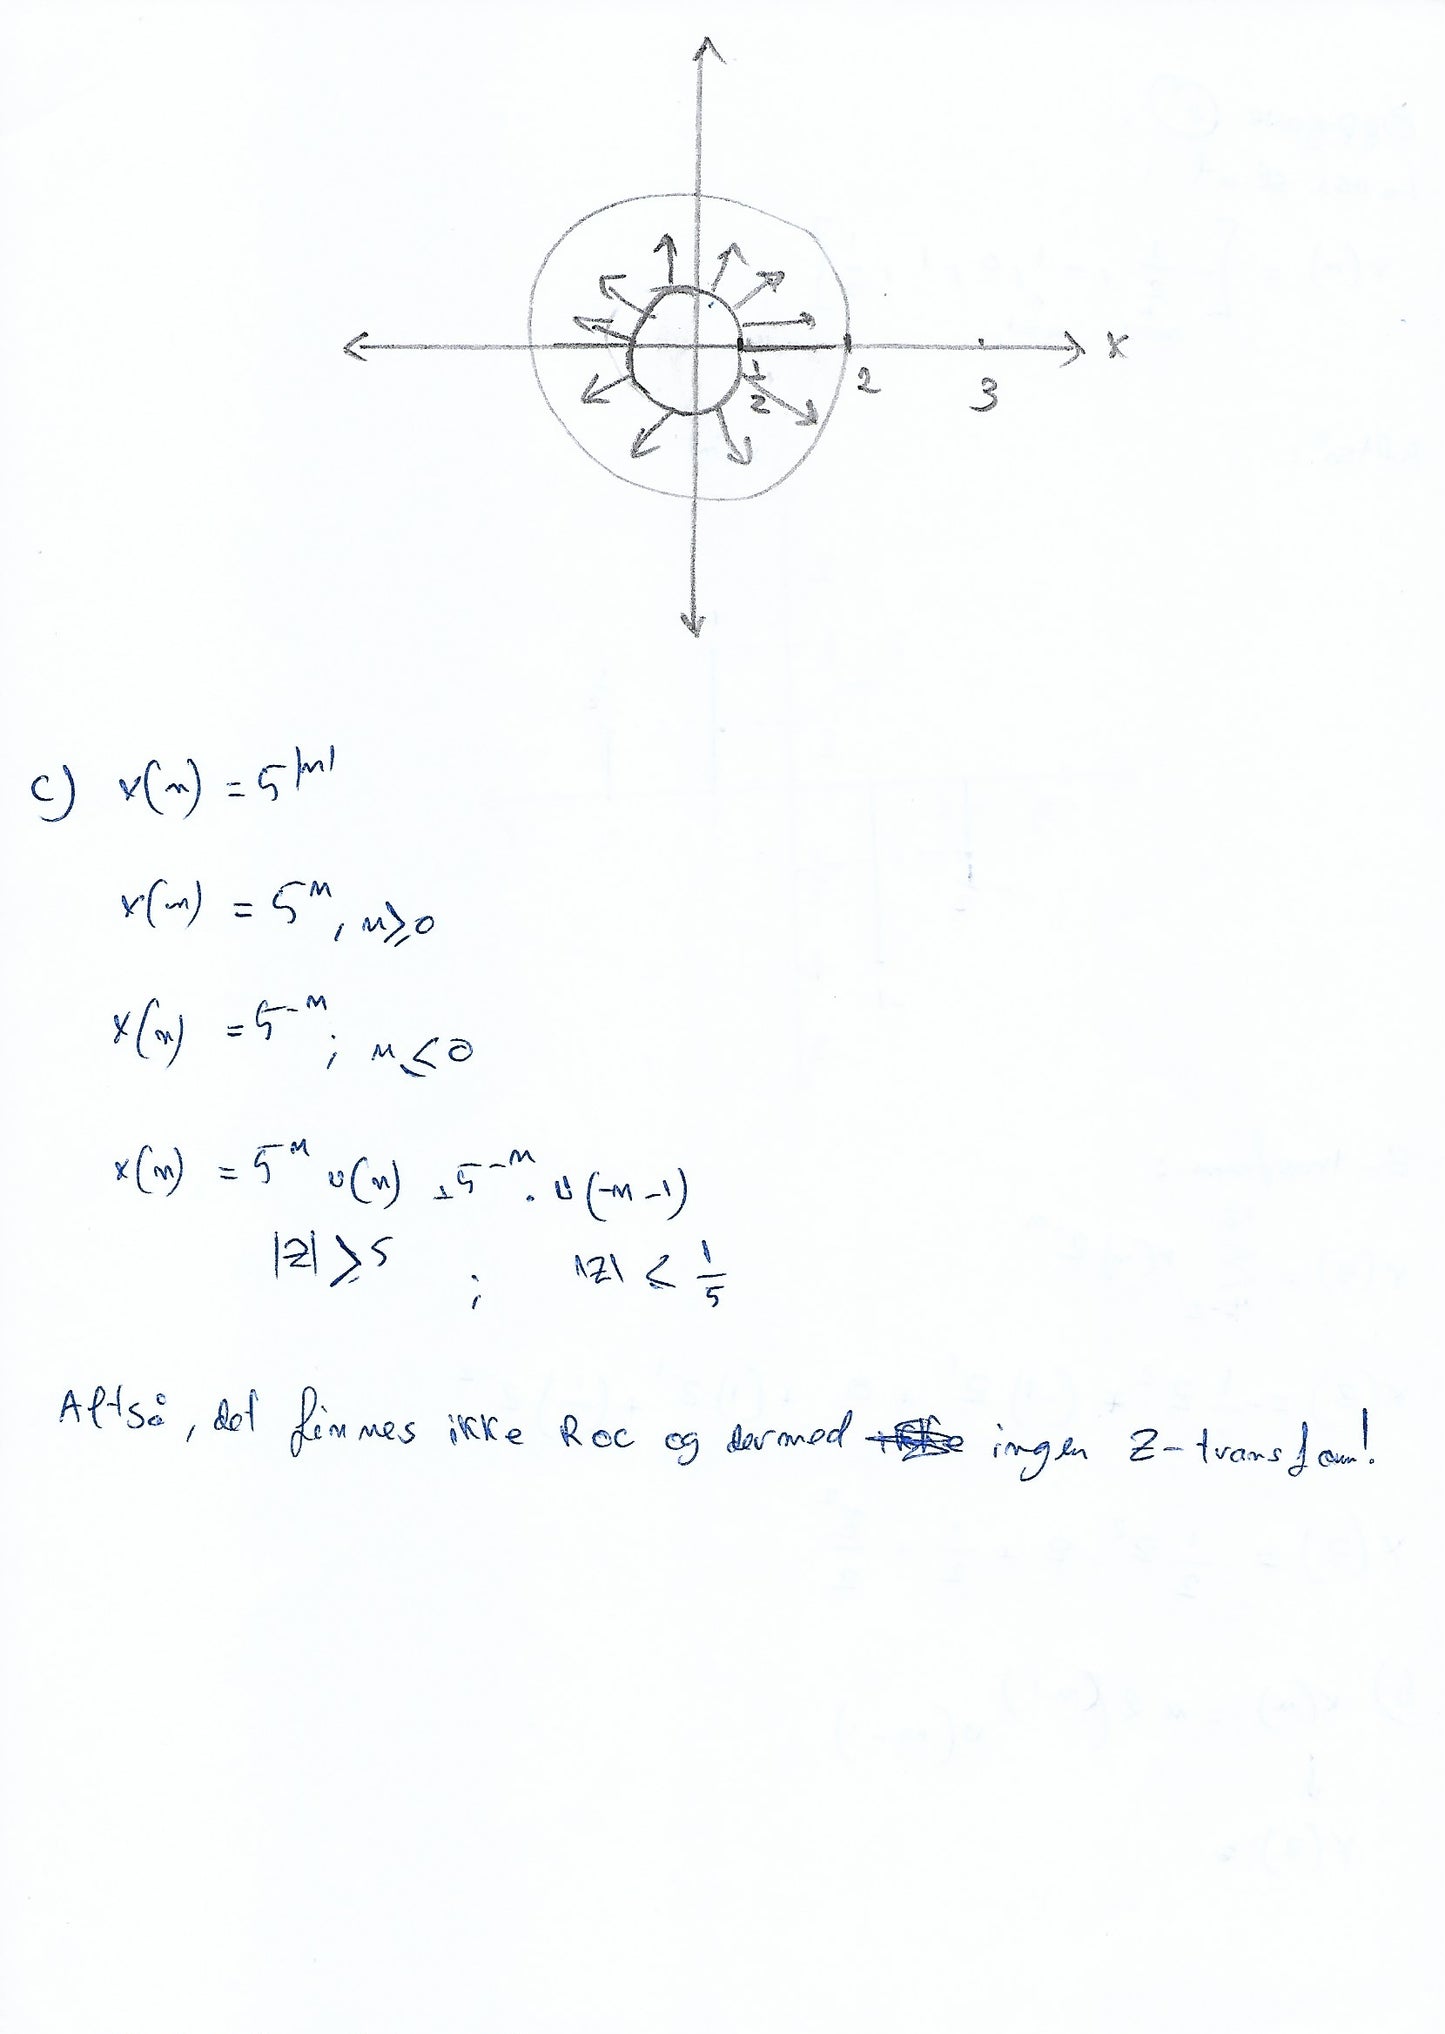 x
1/2 2 3
c) x(n) = 5^|n|
x(n) = 5^n, n≥0
x(n) = 5^-n; n≤0
x(n) = 5^n u(n) + 5^-n · u(-n-1)
|z| ≥ 5 ; |z| < 1/5
Altså, det finnes ikke Roc og dermed ingen Z-transform!